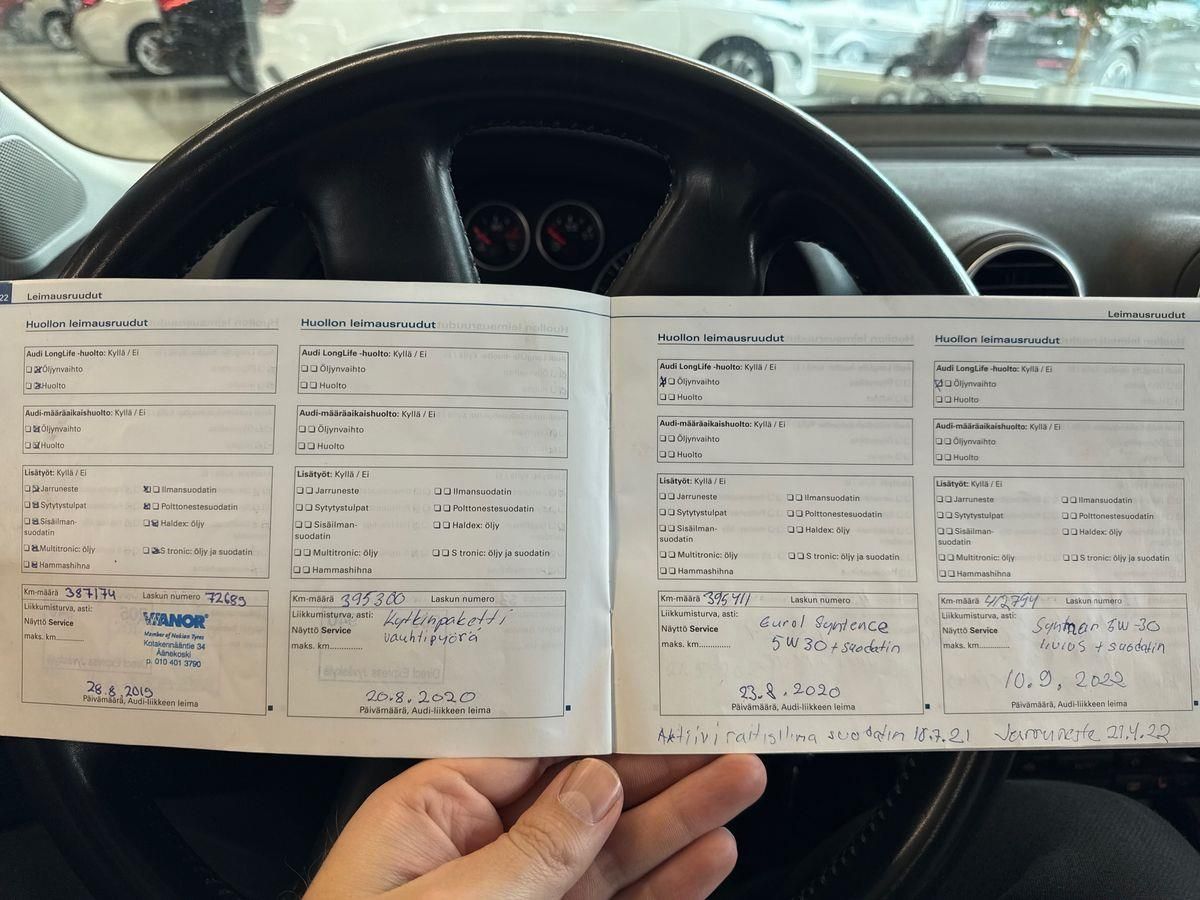 22 Leimausruudut
Huollon leimausruudut
Audi LongLife -huolto: Kyllä / Ei
Öljynvaihto
Huolto
Audi-määräaikaishuolto: Kyllä / Ei
Öljynvaihto
Huolto
Lisätyöt: Kyllä / Ei
Jarruneste Ilmansuodatin
Sytytystulpat Polttonestesuodatin
Sisäilman- Haldex: öljy
suodatin
Multitronic: öljy S tronic: öljy ja suodatin
Hammashihna
Km-määrä 387174 Laskun numero 72689
Liikkumisturva, asti:
Näyttö Service
maks. km
VIANOR
Member of Nokian Tyres
Kotakennääntie 34
Äänekoski
p. 010 401 3790
28.8.2019
Päivämäärä, Audi-liikkeen leima
Huollon leimausruudut
Audi LongLife -huolto: Kyllä / Ei
Öljynvaihto
Huolto
Audi-määräaikaishuolto: Kyllä / Ei
Öljynvaihto
Huolto
Lisätyöt: Kyllä / Ei
Jarruneste Ilmansuodatin
Sytytystulpat Polttonestesuodatin
Sisäilman- Haldex: öljy
suodatin
Multitronic: öljy S tronic: öljy ja suodatin
Hammashihna
Km-määrä 395300 Laskun numero
Liikkumisturva, asti: Kytkinpaketti
Näyttö Service vauhtipyörä
maks. km
20.8.2020
Päivämäärä, Audi-liikkeen leima
Leimausruudut
Huollon leimausruudut
Audi LongLife -huolto: Kyllä / Ei
Öljynvaihto
Huolto
Audi-määräaikaishuolto: Kyllä / Ei
Öljynvaihto
Huolto
Lisätyöt: Kyllä / Ei
Jarruneste Ilmansuodatin
Sytytystulpat Polttonestesuodatin
Sisäilman- Haldex: öljy
suodatin
Multitronic: öljy S tronic: öljy ja suodatin
Hammashihna
Km-määrä 395411 Laskun numero
Liikkumisturva, asti: Eurol Syntence
Näyttö Service 5W30 + suodatin
maks. km
23.8.2020
Päivämäärä, Audi-liikkeen leima
Huollon leimausruudut
Audi LongLife -huolto: Kyllä / Ei
Öljynvaihto
Huolto
Audi-määräaikaishuolto: Kyllä / Ei
Öljynvaihto
Huolto
Lisätyöt: Kyllä / Ei
Jarruneste Ilmansuodatin
Sytytystulpat Polttonestesuodatin
Sisäilman- Haldex: öljy
suodatin
Multitronic: öljy S tronic: öljy ja suodatin
Hammashihna
Km-määrä 412794 Laskun numero
Liikkumisturva, asti: 5W-30
Näyttö Service + suodatin
maks. km
10.9.2022
Päivämäärä, Audi-liikkeen leima
Aktiivi raitisilma suodatin 18.7.21 Jarruneste 21.4.22